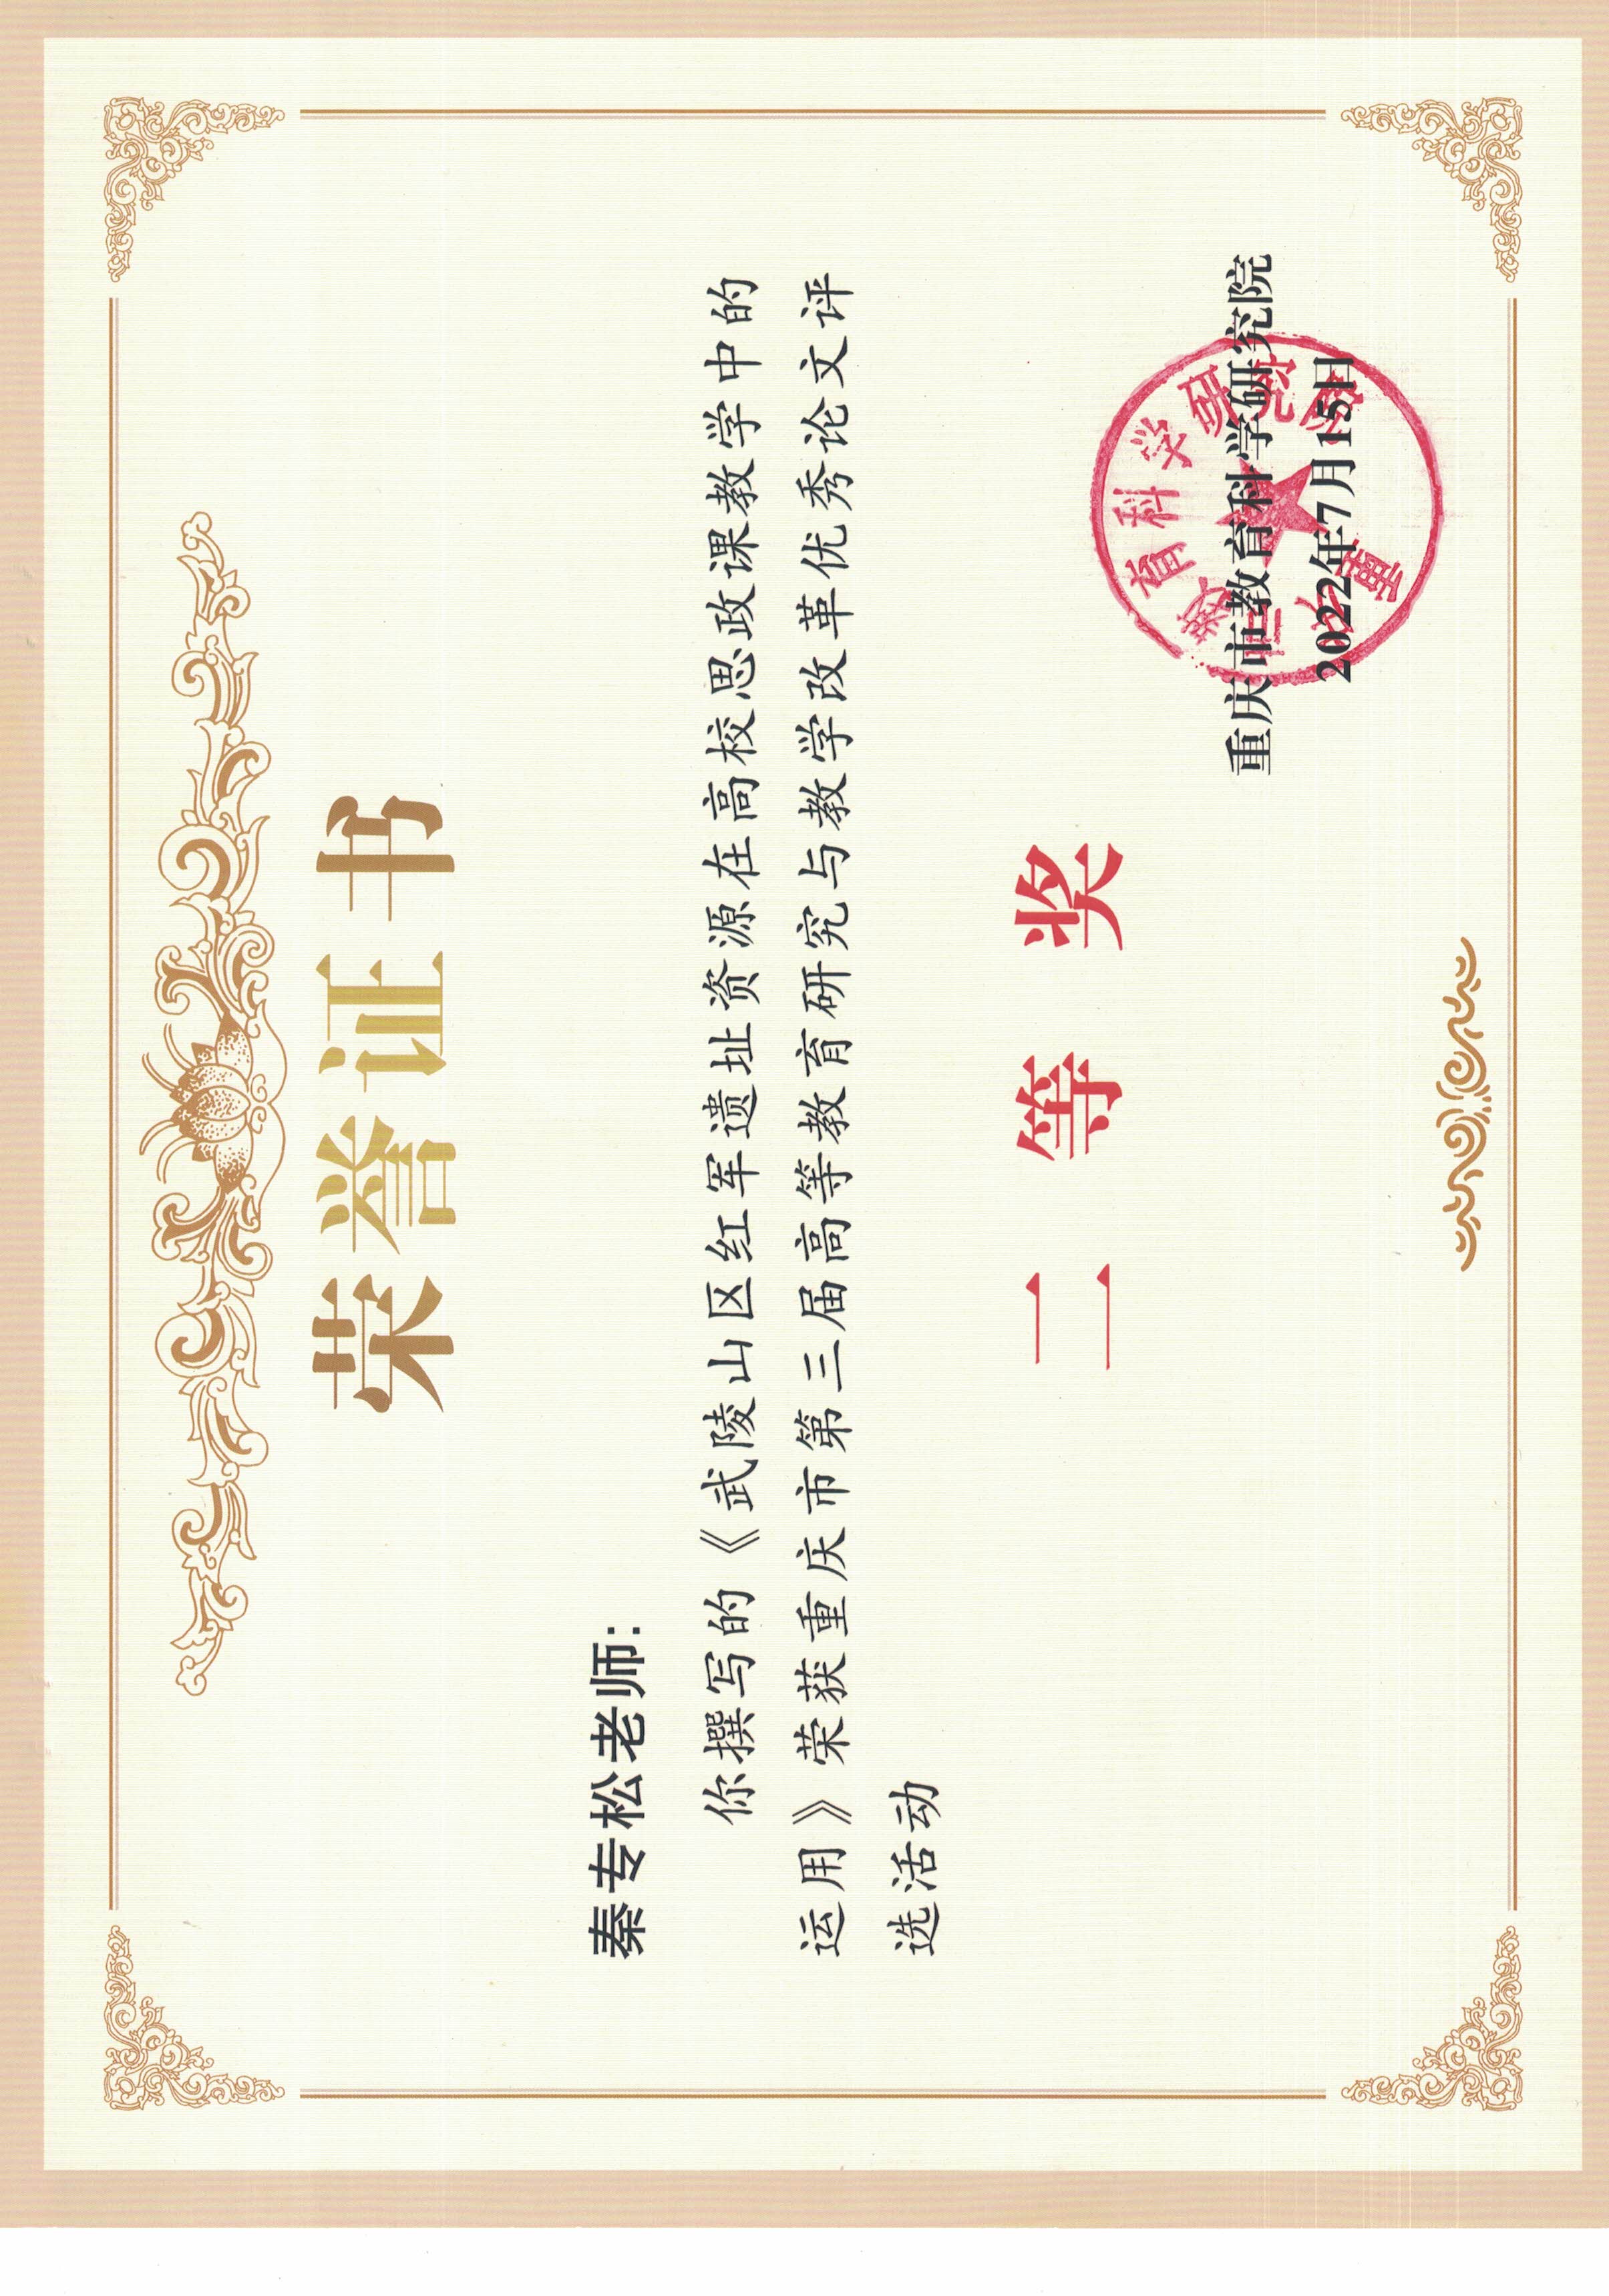 荣誉证书
秦专松老师:
你撰写的《武陵山区红军遗址资源在高校思政课教学中的
运用》荣获重庆市第三届高等教育研究与教学改革优秀论文评
选活动
二等奖
重庆市教育科学研究院
2022年7月15日
重庆市教育科学研究院